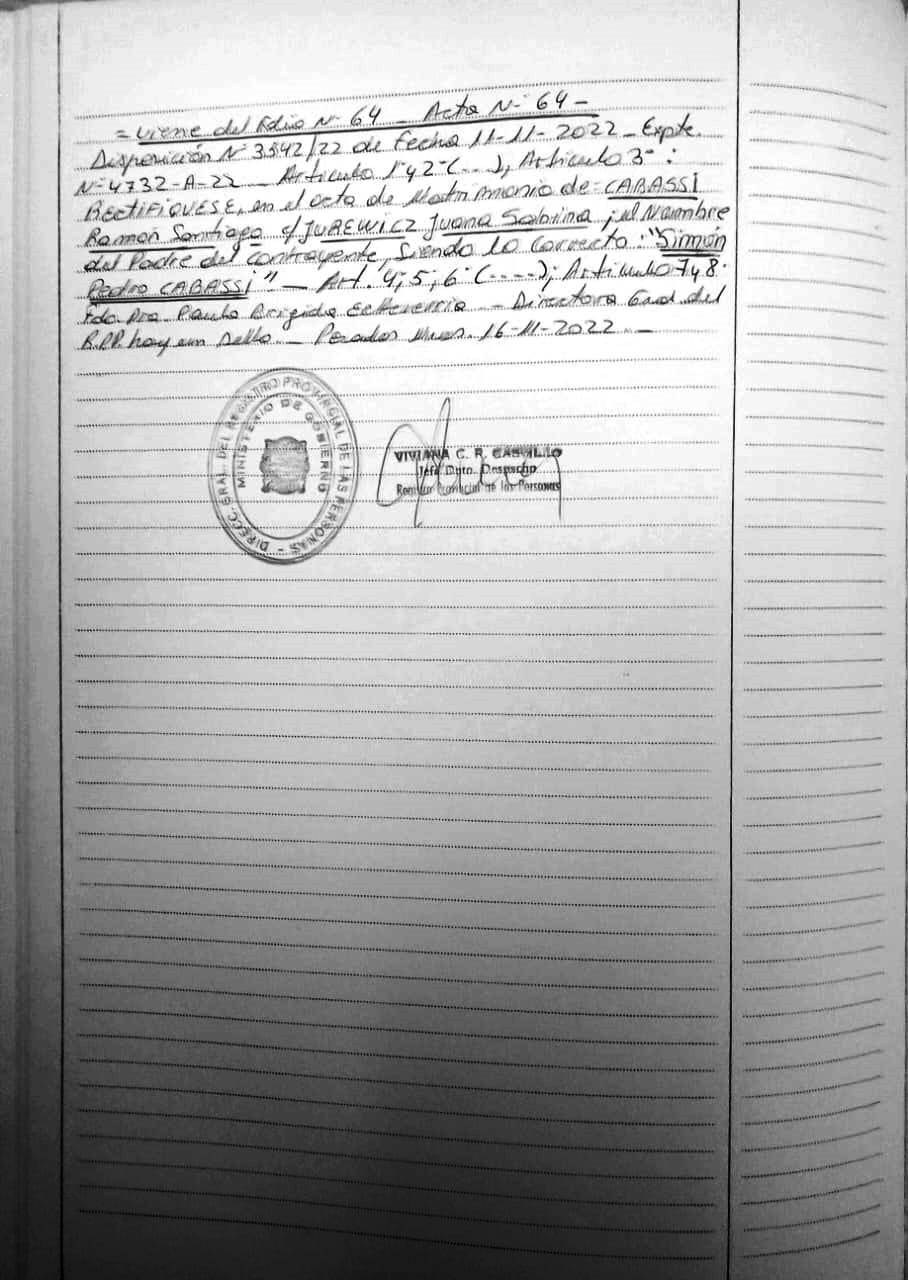 = Viene del Folio Nº 64 _ Acta Nº 64 _
Disposición Nº 3542/22 de Fecha 11-11-2022 _ Expte.
Nº 4732-A-22 _ Articulo 1º y 2º (....), Articulo 3º :
RECTIFIQUESE, en el acta de Matrimonio de: CABASSI
Ramón Santiago c/ JUREWICZ Juana Sabrina ; el Nombre
del Padre del Contrayente, Siendo lo Correcto: "Simón
Pedro CABASSI" _ Art. 4; 5; 6 (....); Articulo 7 y 8
Fdo. Dra. Paula Brigida Echeverria _ Directora Gral. del
R.P.P. hay un Sello _ Posadas Mnes. 16-11-2022 _
DIRECC. GRAL. DEL REGISTRO PROVINCIAL DE LAS PERSONAS -
MINISTERIO DE GOBIERNO
VIVIANA C. R. CASTILLO
Jefe Dpto. Despacho
Registro Provincial de las Personas